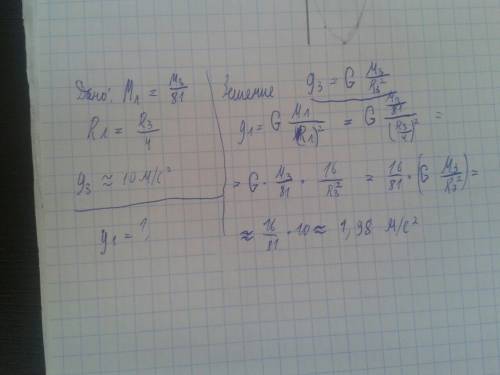 Дано: Mл = Mз/81
Rл = Rз/4
gз ≈ 10 м/с²
gл = ?
Решение gз = G Mз/Rз²
gл = G Mл/(Rл)² = G (Mз/81)/(Rз/4)² =
= G · Mз/81 · 16/Rз² = 16/81 · (G Mз/Rз²) =
≈ 16/81 · 10 ≈ 1,98 м/с²